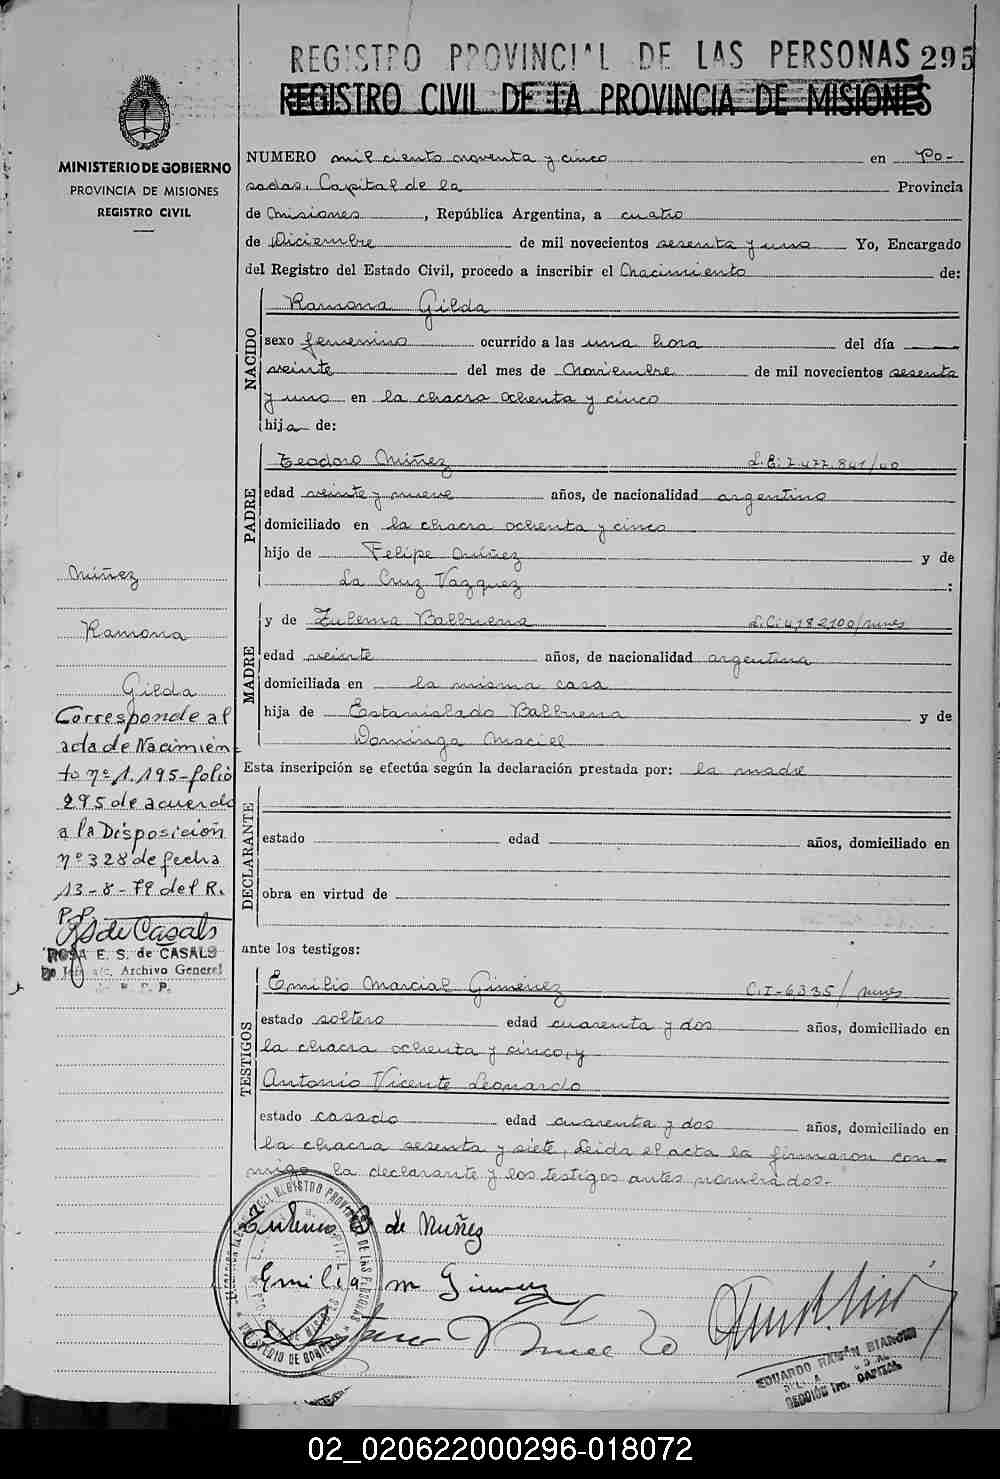 REGISTRO PROVINCIAL DE LAS PERSONAS 295
REGISTRO CIVIL DE LA PROVINCIA DE MISIONES
MINISTERIO DE GOBIERNO
PROVINCIA DE MISIONES
REGISTRO CIVIL
NUMERO mil ciento noventa y cinco en Po-
sadas, Capital de la Provincia
de Misiones, República Argentina, a cuatro
de Diciembre de mil novecientos sesenta y uno Yo, Encargado
del Registro del Estado Civil, procedo a inscribir el Nacimiento de:
NACIDO
Ramona Gilda
sexo femenino ocurrido a las una hora del día
veinte del mes de Noviembre de mil novecientos sesenta
y uno en la chacra ochenta y cinco
hija de:
PADRE
Teodoro Núñez L.E. 7.477.841/
edad veinte y nueve años, de nacionalidad argentino
domiciliado en la chacra ochenta y cinco
hijo de Felipe Núñez y de
La Cruz Vazquez :
MADRE
y de Zulema Balbuena L.C. 4.182.100/mnes
edad veinte años, de nacionalidad argentina
domiciliada en la misma casa
hija de Estanislado Balbuena y de
Dominga Maciel
Esta inscripción se efectúa según la declaración prestada por: la madre
DECLARANTE
estado edad años, domiciliado en
obra en virtud de
ante los testigos:
TESTIGOS
Emilio Marcial Giménez C.I-6335/ mnes
estado soltero edad cuarenta y dos años, domiciliado en
la chacra ochenta y cinco, y
Antonio Vicente Leonardo
estado casado edad cuarenta y dos años, domiciliado en
la chacra sesenta y siete, Leida el acta la firmaron con-
migo la declarante y los testigos antes nombrados.-
Núñez
Ramona
Gilda
Corresponde al
acta de Nacimien-
to nº 1.195-folio
295 de acuerdo
a la Disposición
nº 328 de fecha
13-8-79 del R.
P.P.
RS de Casals
ROSA E. S. de CASALS
Archivo General
R. P. P.
de Nuñez
Emilio M Gimenez
EDUARDO RAMÓN BIANCHI
SECCIÓN 1ra. CAPITAL
REGISTRO PROVINCIAL DE LAS PERSONAS
MINISTERIO DE GOBIERNO
02_020622000296-018072